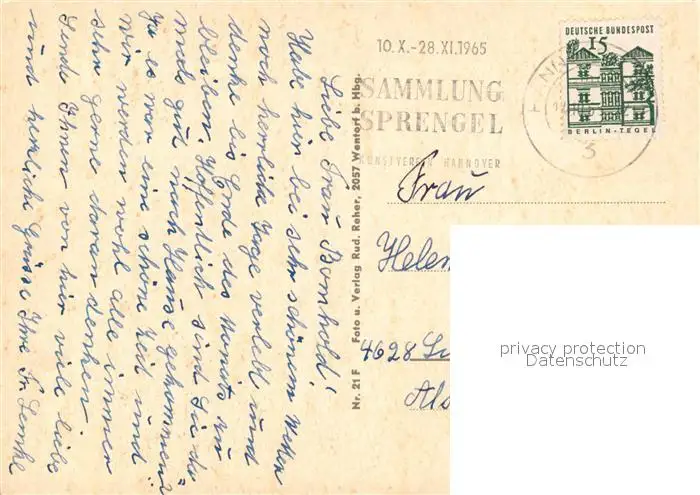 Liebe Frau Bomhold!
Habe hier bei sehr schönem Wetter
noch herrliche Tage verlebt und
denke bis Ende des Monats zu
bleiben. Hoffentlich sind Sie da-
mals gut nach Hause gekommen?
Ja es war eine schöne Zeit und
wir werden wohl alle immer
sehr gerne daran denken.
Sende Ihnen von hier viele liebe
und herzliche Grüsse Ihre Fr.
Nr. 21 F Foto u. Verlag Rud. Reher, 2057 Wentorf b. Hbg.
10. X.-28. XI. 1965
SAMMLUNG
SPRENGEL
KUNSTVEREIN HANNOVER
3
DEUTSCHE BUNDESPOST
15
BERLIN-TEGEL
Frau
4628
privacy protection
Datenschutz